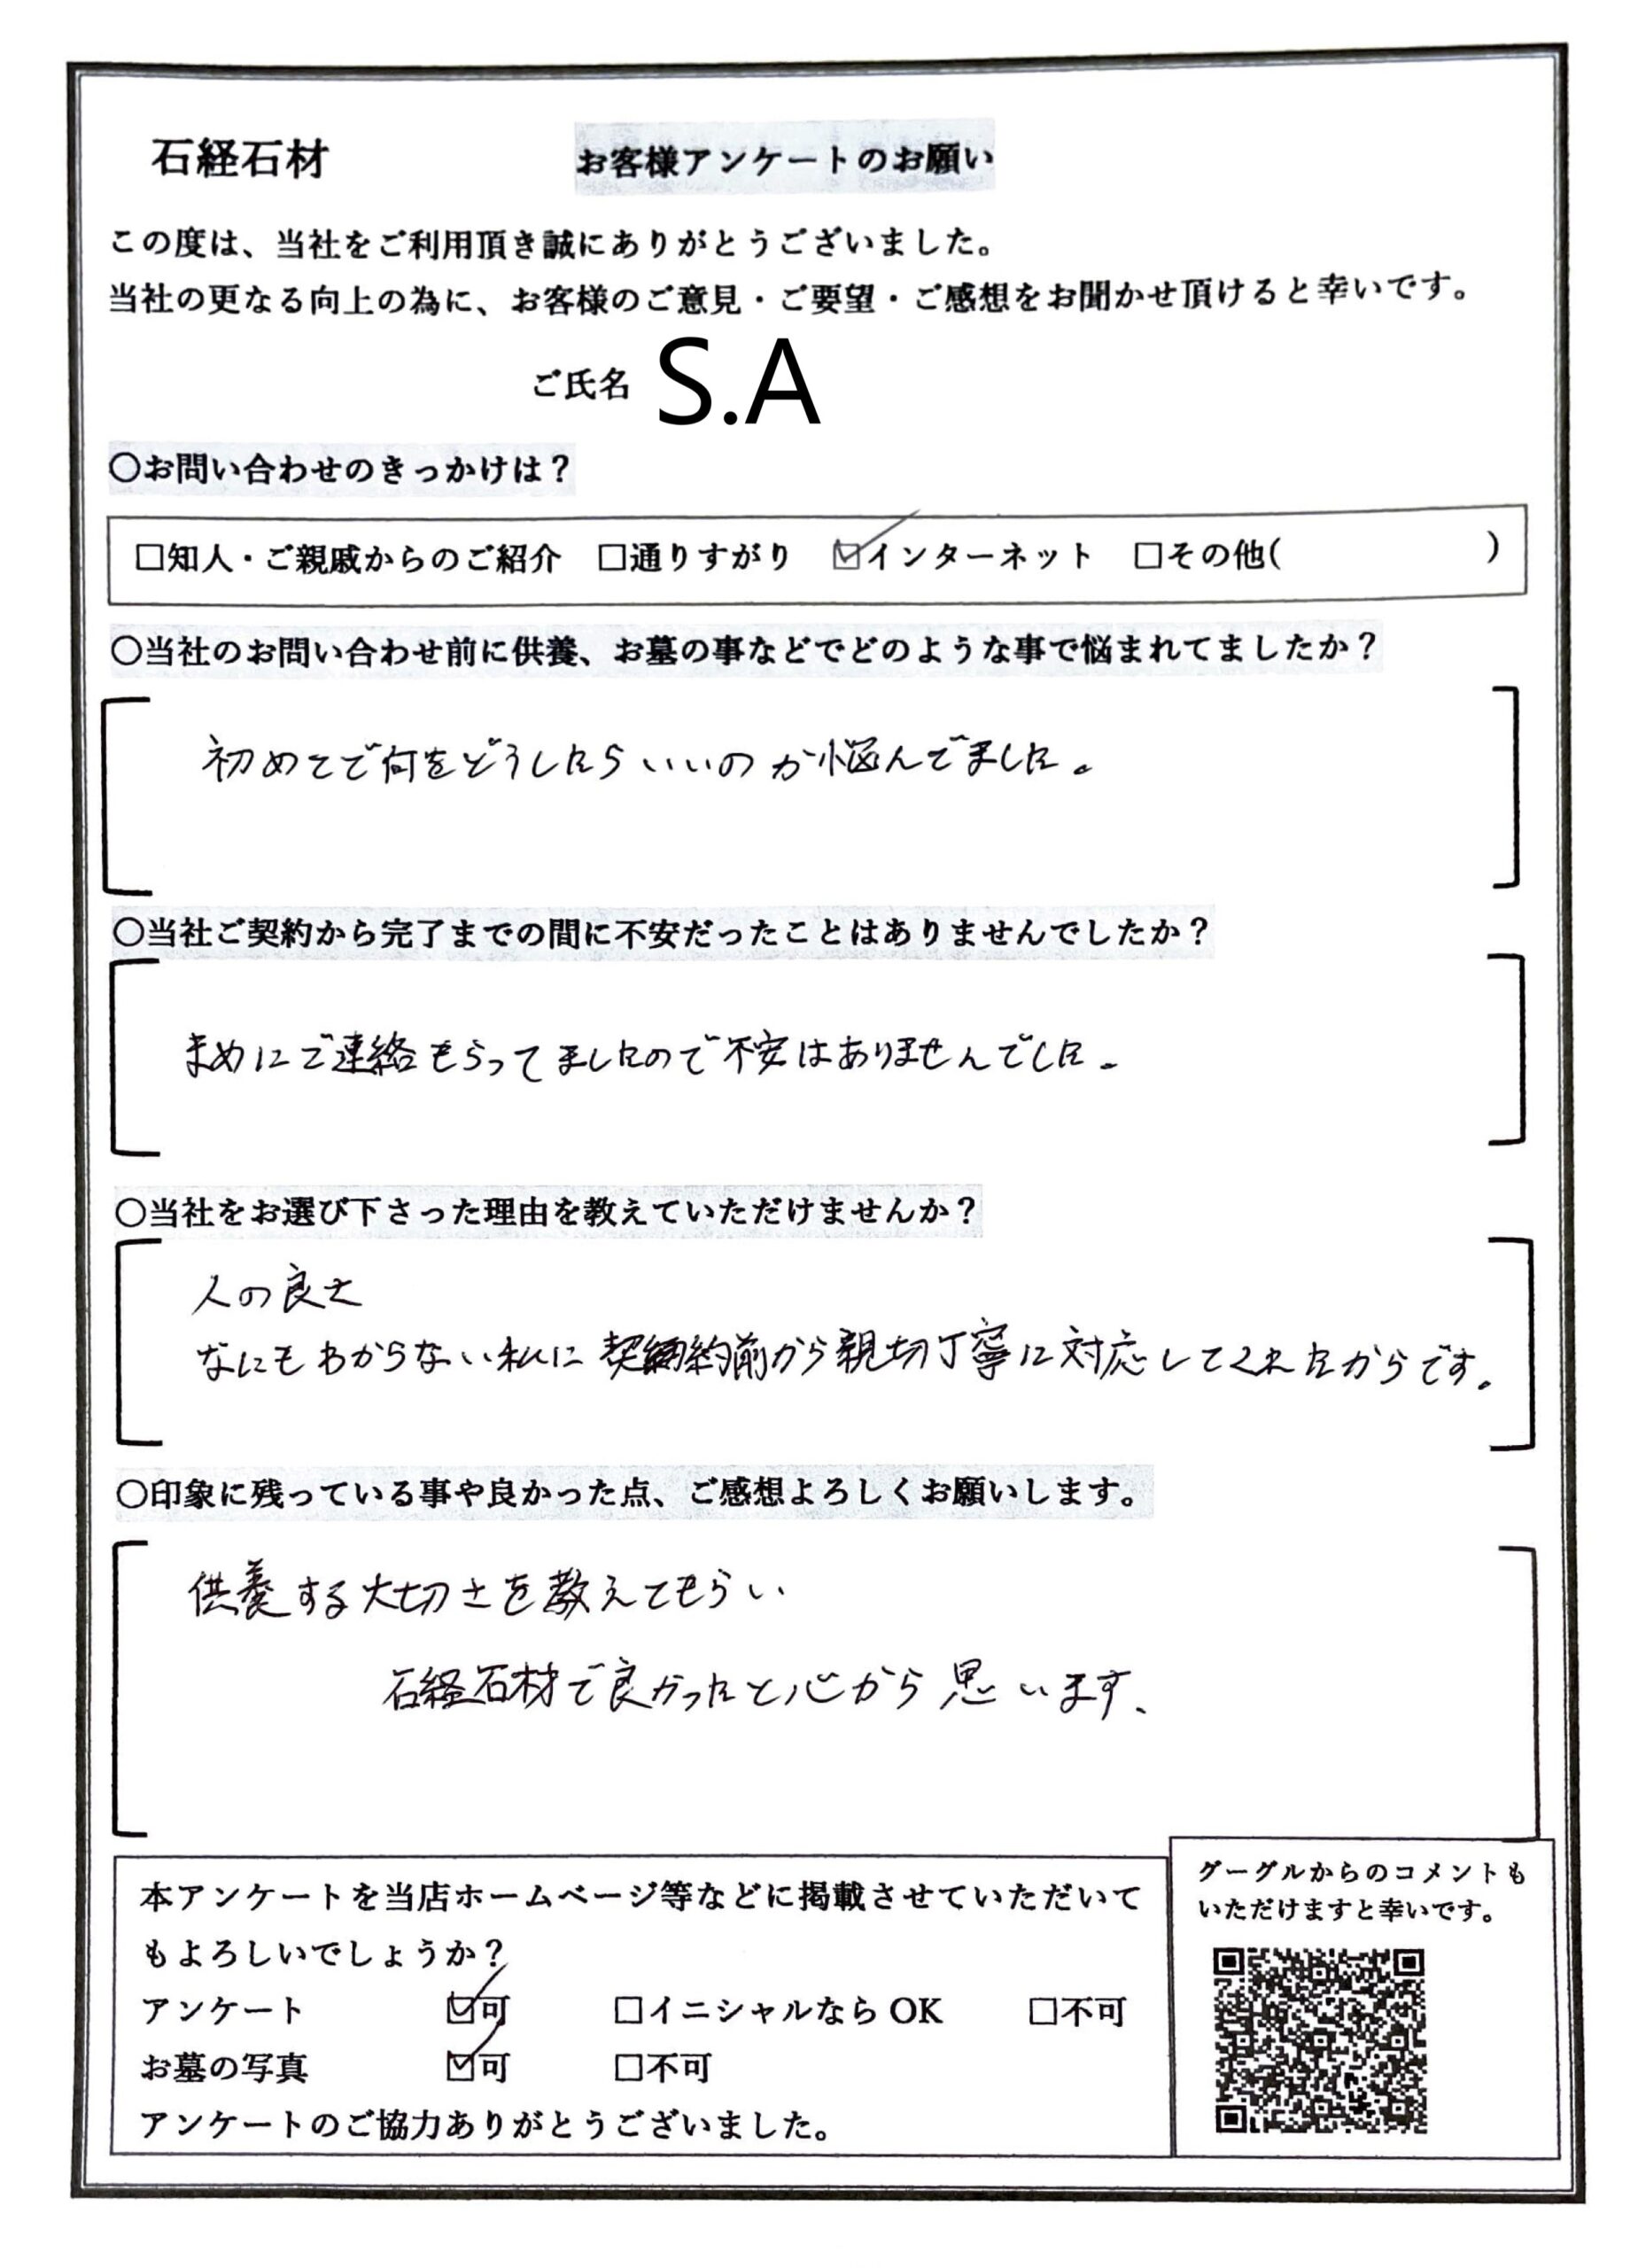 石経石材 お客様アンケートのお願い
この度は、当社をご利用頂き誠にありがとうございました。
当社の更なる向上の為に、お客様のご意見・ご要望・ご感想をお聞かせ頂けると幸いです。
ご氏名 S.A
〇お問い合わせのきっかけは？
□知人・ご親戚からのご紹介 □通りすがり ☑インターネット □その他( )
〇当社のお問い合わせ前に供養、お墓の事などでどのような事で悩まれてましたか？
初めてで何をどうしたらいいのか悩んでました。
〇当社ご契約から完了までの間に不安だったことはありませんでしたか？
まめにご連絡もらってましたので不安はありませんでした。
〇当社をお選び下さった理由を教えていただけませんか？
人の良さ
なにもわからない私に契約前から親切丁寧に対応してくれたからです。
〇印象に残っている事や良かった点、ご感想よろしくお願いします。
供養する大切さを教えてもらい
石経石材で良かったと心から思います、
本アンケートを当店ホームページ等などに掲載させていただいて
もよろしいでしょうか？
アンケート ☑可 □イニシャルなら OK □不可
お墓の写真 ☑可 □不可
アンケートのご協力ありがとうございました。
グーグルからのコメントも
いただけますと幸いです。